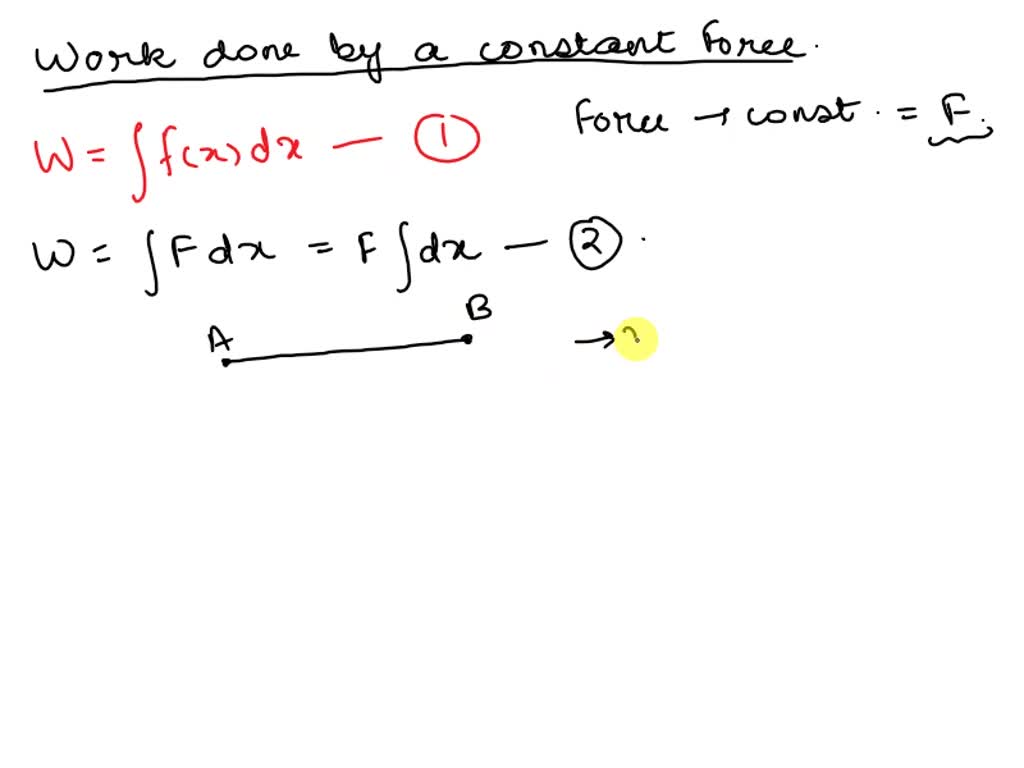 Work done by a constant Force.
Force → const. = F.
W = ∫ f(x) dx — ①
W = ∫ F dx = F ∫ dx — ② .
A B →